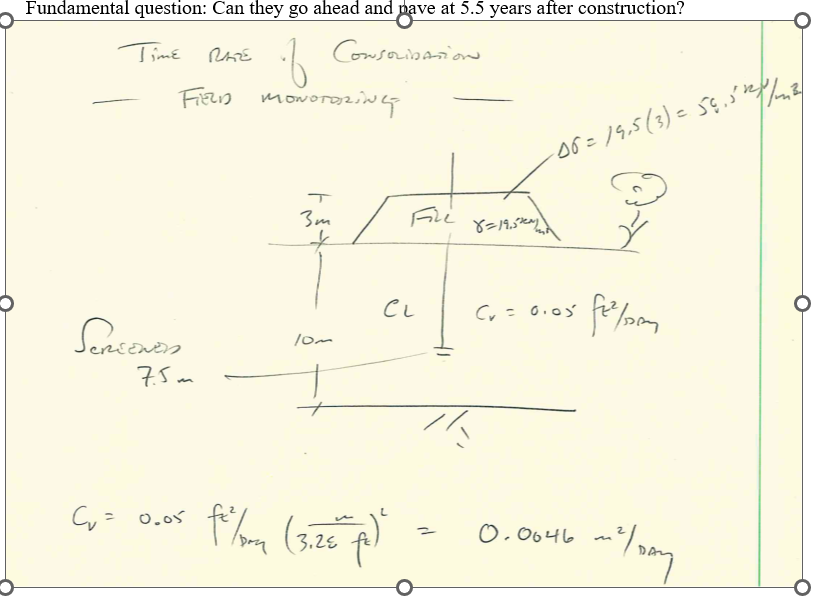 Fundamental question: Can they go ahead and pave at 5.5 years after construction?
TIME RATE of CONSOLIDATION
— FIELD MONOTORING —
Δσ = 19.5(3) = 58.5 kN/m²
3m
FILL γ=19.5 kN/m³
CL Cv = 0.05 ft²/DAY
10m
SCREENED
7.5 m
Cv = 0.05 ft²/DAY (m/3.28 ft)² = 0.0046 m²/DAY